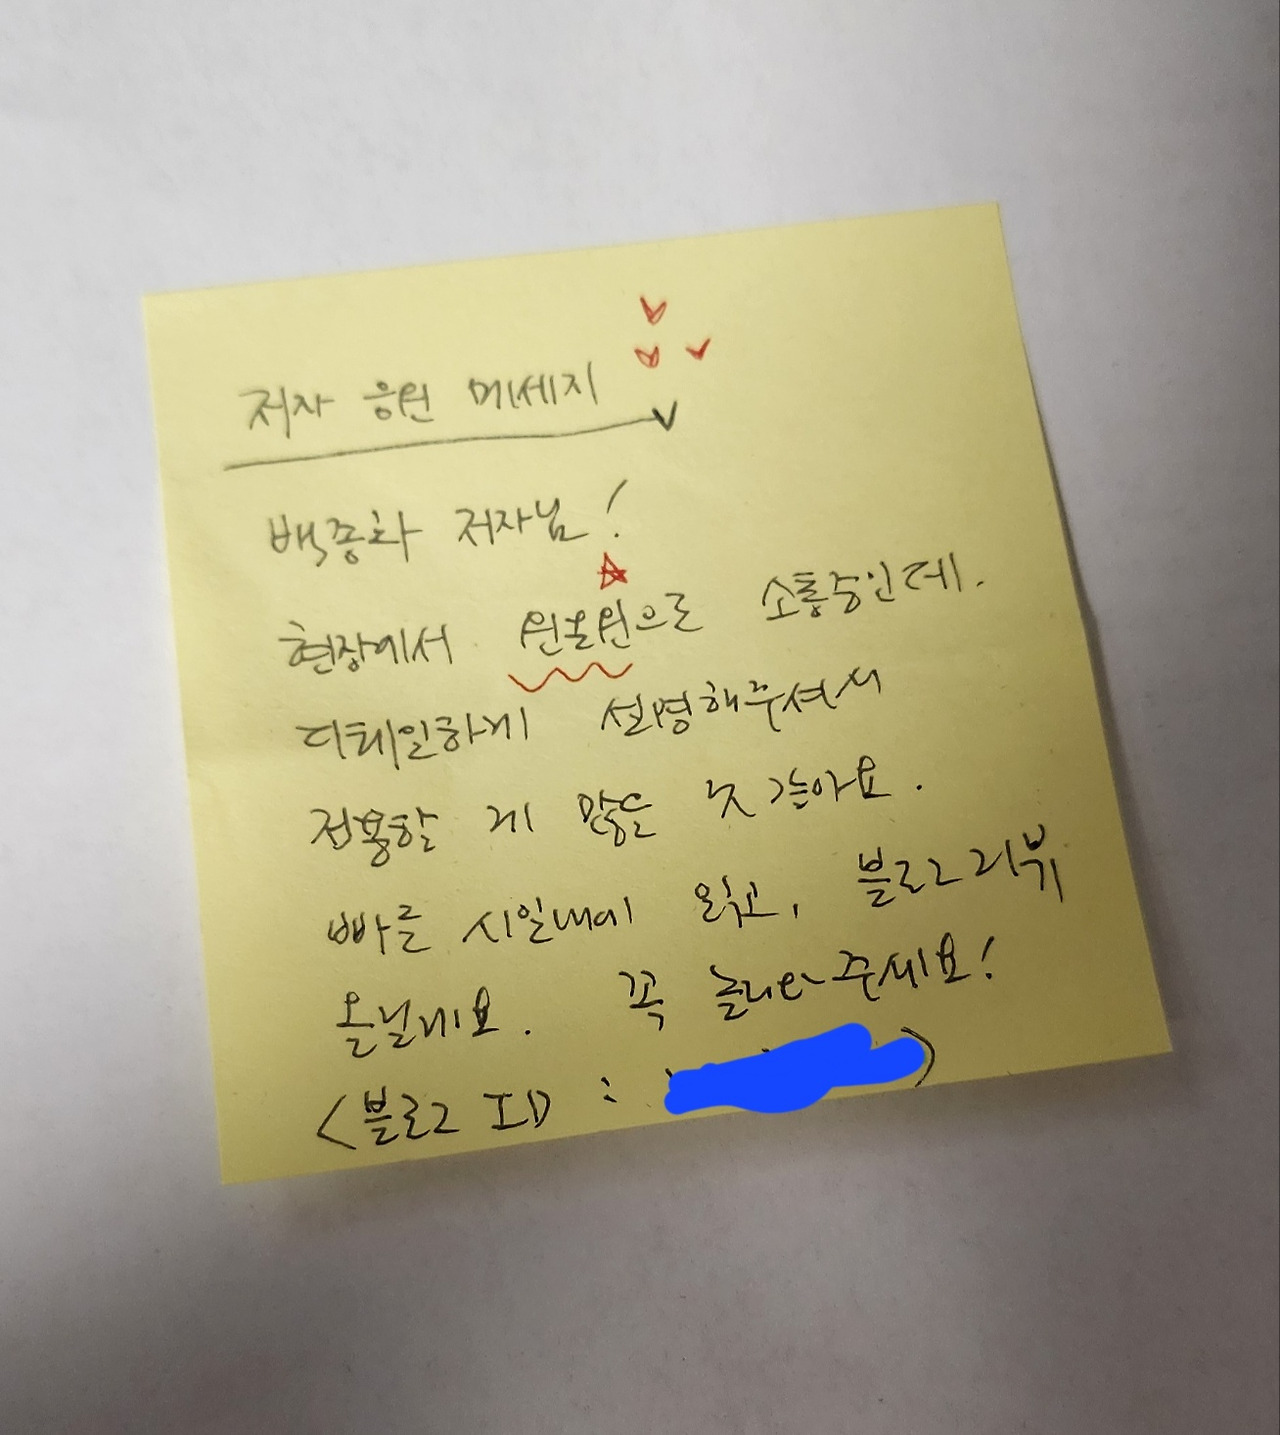 저자 응원 메세지
백종화 저자님!
현장에서 원온원으로 소통중인데.
디테일하게 설명해주셔서
적용할 게 많을 것 같아요.
빠른 시일내에 읽고, 블로그 리뷰
올릴게요. 꼭 놀러와주세요!
<블로그 ID :